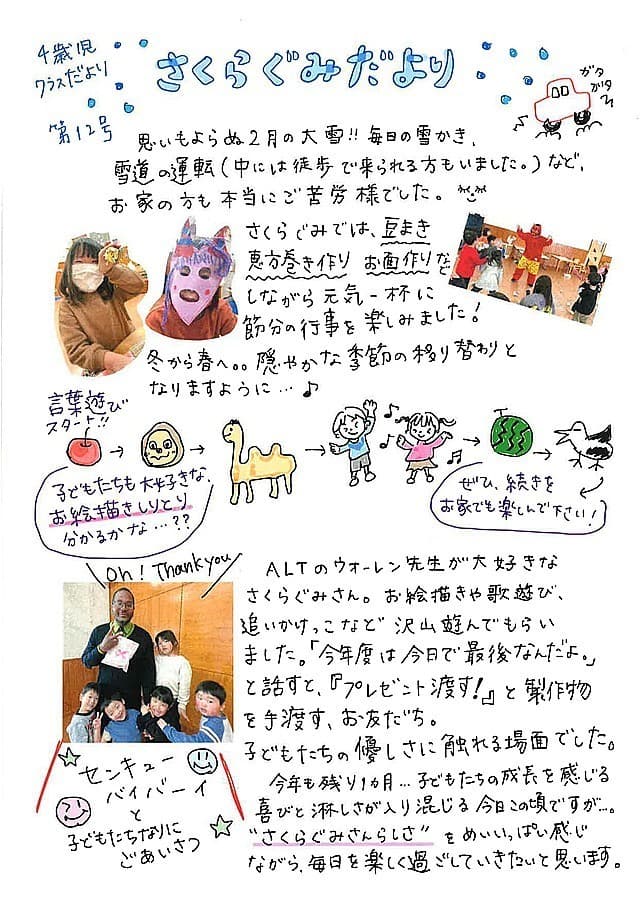 4歳児
クラスだより
さくらぐみだより
第12号
ガタ
ガタ
思いもよらぬ2月の大雪!!毎日の雪かき、
雪道の運転(中には徒歩で来られる方もいました。)など、
お家の方も本当にご苦労様でした。
さくらぐみでは、豆まき
恵方巻き作り お面作りなど
しながら元気一杯に
節分の行事を楽しみました!
冬から春へ。。穏やかな季節の移り替わりと
なりますように…♪
言葉遊び
スタート!!
子どもたちも大好きな、
お絵描きしりとり
分かるかな…??
ぜひ、続きを
お家でも楽しんで下さい!
Oh! Thank you
ALTのウォーレン先生が大好きな
さくらぐみさん。お絵描きや歌遊び、
追いかけっこなど沢山遊んでもらい
ました。「今年度は今日で最後なんだよ。」
と話すと、『プレゼント渡す!』と製作物
を手渡す、お友だち。
子どもたちの優しさに触れる場面でした。
センキュー
バイバーイ
と
子どもたちなりに
ごあいさつ
今年も残り1ヵ月…子どもたちの成長を感じる
喜びと淋しさが入り混じる今日この頃ですが…。
"さくらぐみさんらしさ"をめいいっぱい感じ
ながら、毎日を楽しく過ごしていきたいと思います。